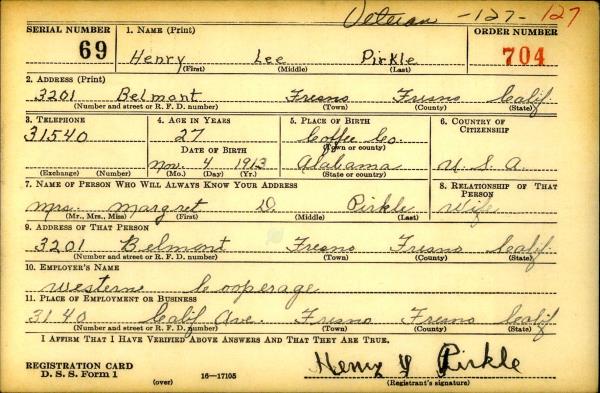 Veteran -127- 127
SERIAL NUMBER 1. NAME (Print) ORDER NUMBER
69 Henry Lee Pirkle 704
(First) (Middle) (Last)
2. ADDRESS (Print)
3201 Belmont Fresno Fresno Calif
(Number and street or R. F. D. number) (Town) (County) (State)
3. TELEPHONE 4. AGE IN YEARS 5. PLACE OF BIRTH 6. COUNTRY OF CITIZENSHIP
31540 27 Coffee Co.
DATE OF BIRTH (Town or county)
Nov. 4 1913 Alabama U.S.A.
(Exchange) (Number) (Mo.) (Day) (Yr.) (State or country)
7. NAME OF PERSON WHO WILL ALWAYS KNOW YOUR ADDRESS 8. RELATIONSHIP OF THAT PERSON
Mrs. Margret D. Pirkle Wife
(Mr., Mrs., Miss) (First) (Middle) (Last)
9. ADDRESS OF THAT PERSON
3201 Belmont Fresno Fresno Calif.
(Number and street or R. F. D. number) (Town) (County) (State)
10. EMPLOYER'S NAME
Western Cooperage
11. PLACE OF EMPLOYMENT OR BUSINESS
3140 Calif Ave. Fresno Fresno Calif
(Number and street or R. F. D. number) (Town) (County) (State)
I AFFIRM THAT I HAVE VERIFIED ABOVE ANSWERS AND THAT THEY ARE TRUE.
Henry Pirkle
REGISTRATION CARD
D. S. S. Form 1 (over) 16—17105 (Registrant's signature)